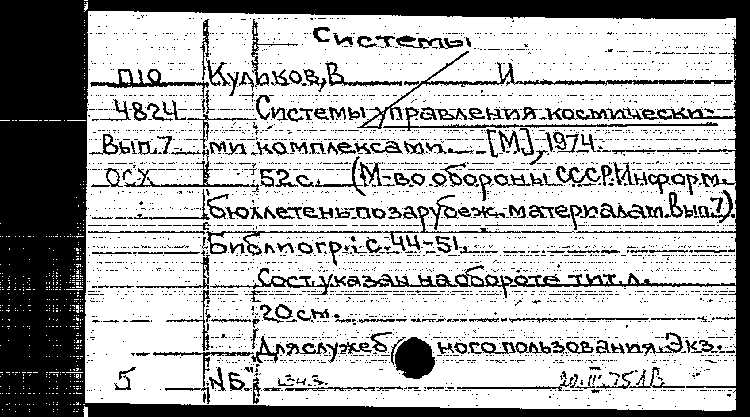 Системы
П10 Кульков, В И
4824 Системы управления космически-
Вып.7 ми комплексами. [М], 1974.
ОСХ 52 с. (М-во обороны СССР. Информ.
бюллетень по зарубеж. материалам. Вып.7).
Библиогр.: с. 44-51.
Сост. указан на обороте тит. л.
20 см.
Для служебного пользования. Экз.
5 №Б